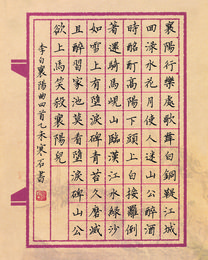 襄陽行樂處歌舞白銅鞮江城
回淥水花月使人迷山公醉酒
時酩酊高陽下頭上白接䍦倒
著還騎馬峴山臨漢江水綠沙
如雪上有墮淚碑青苔久磨滅
且醉習家池莫看墮淚碑山公
欲上馬笑殺襄陽兒
李白襄陽曲四首乙未寒石書